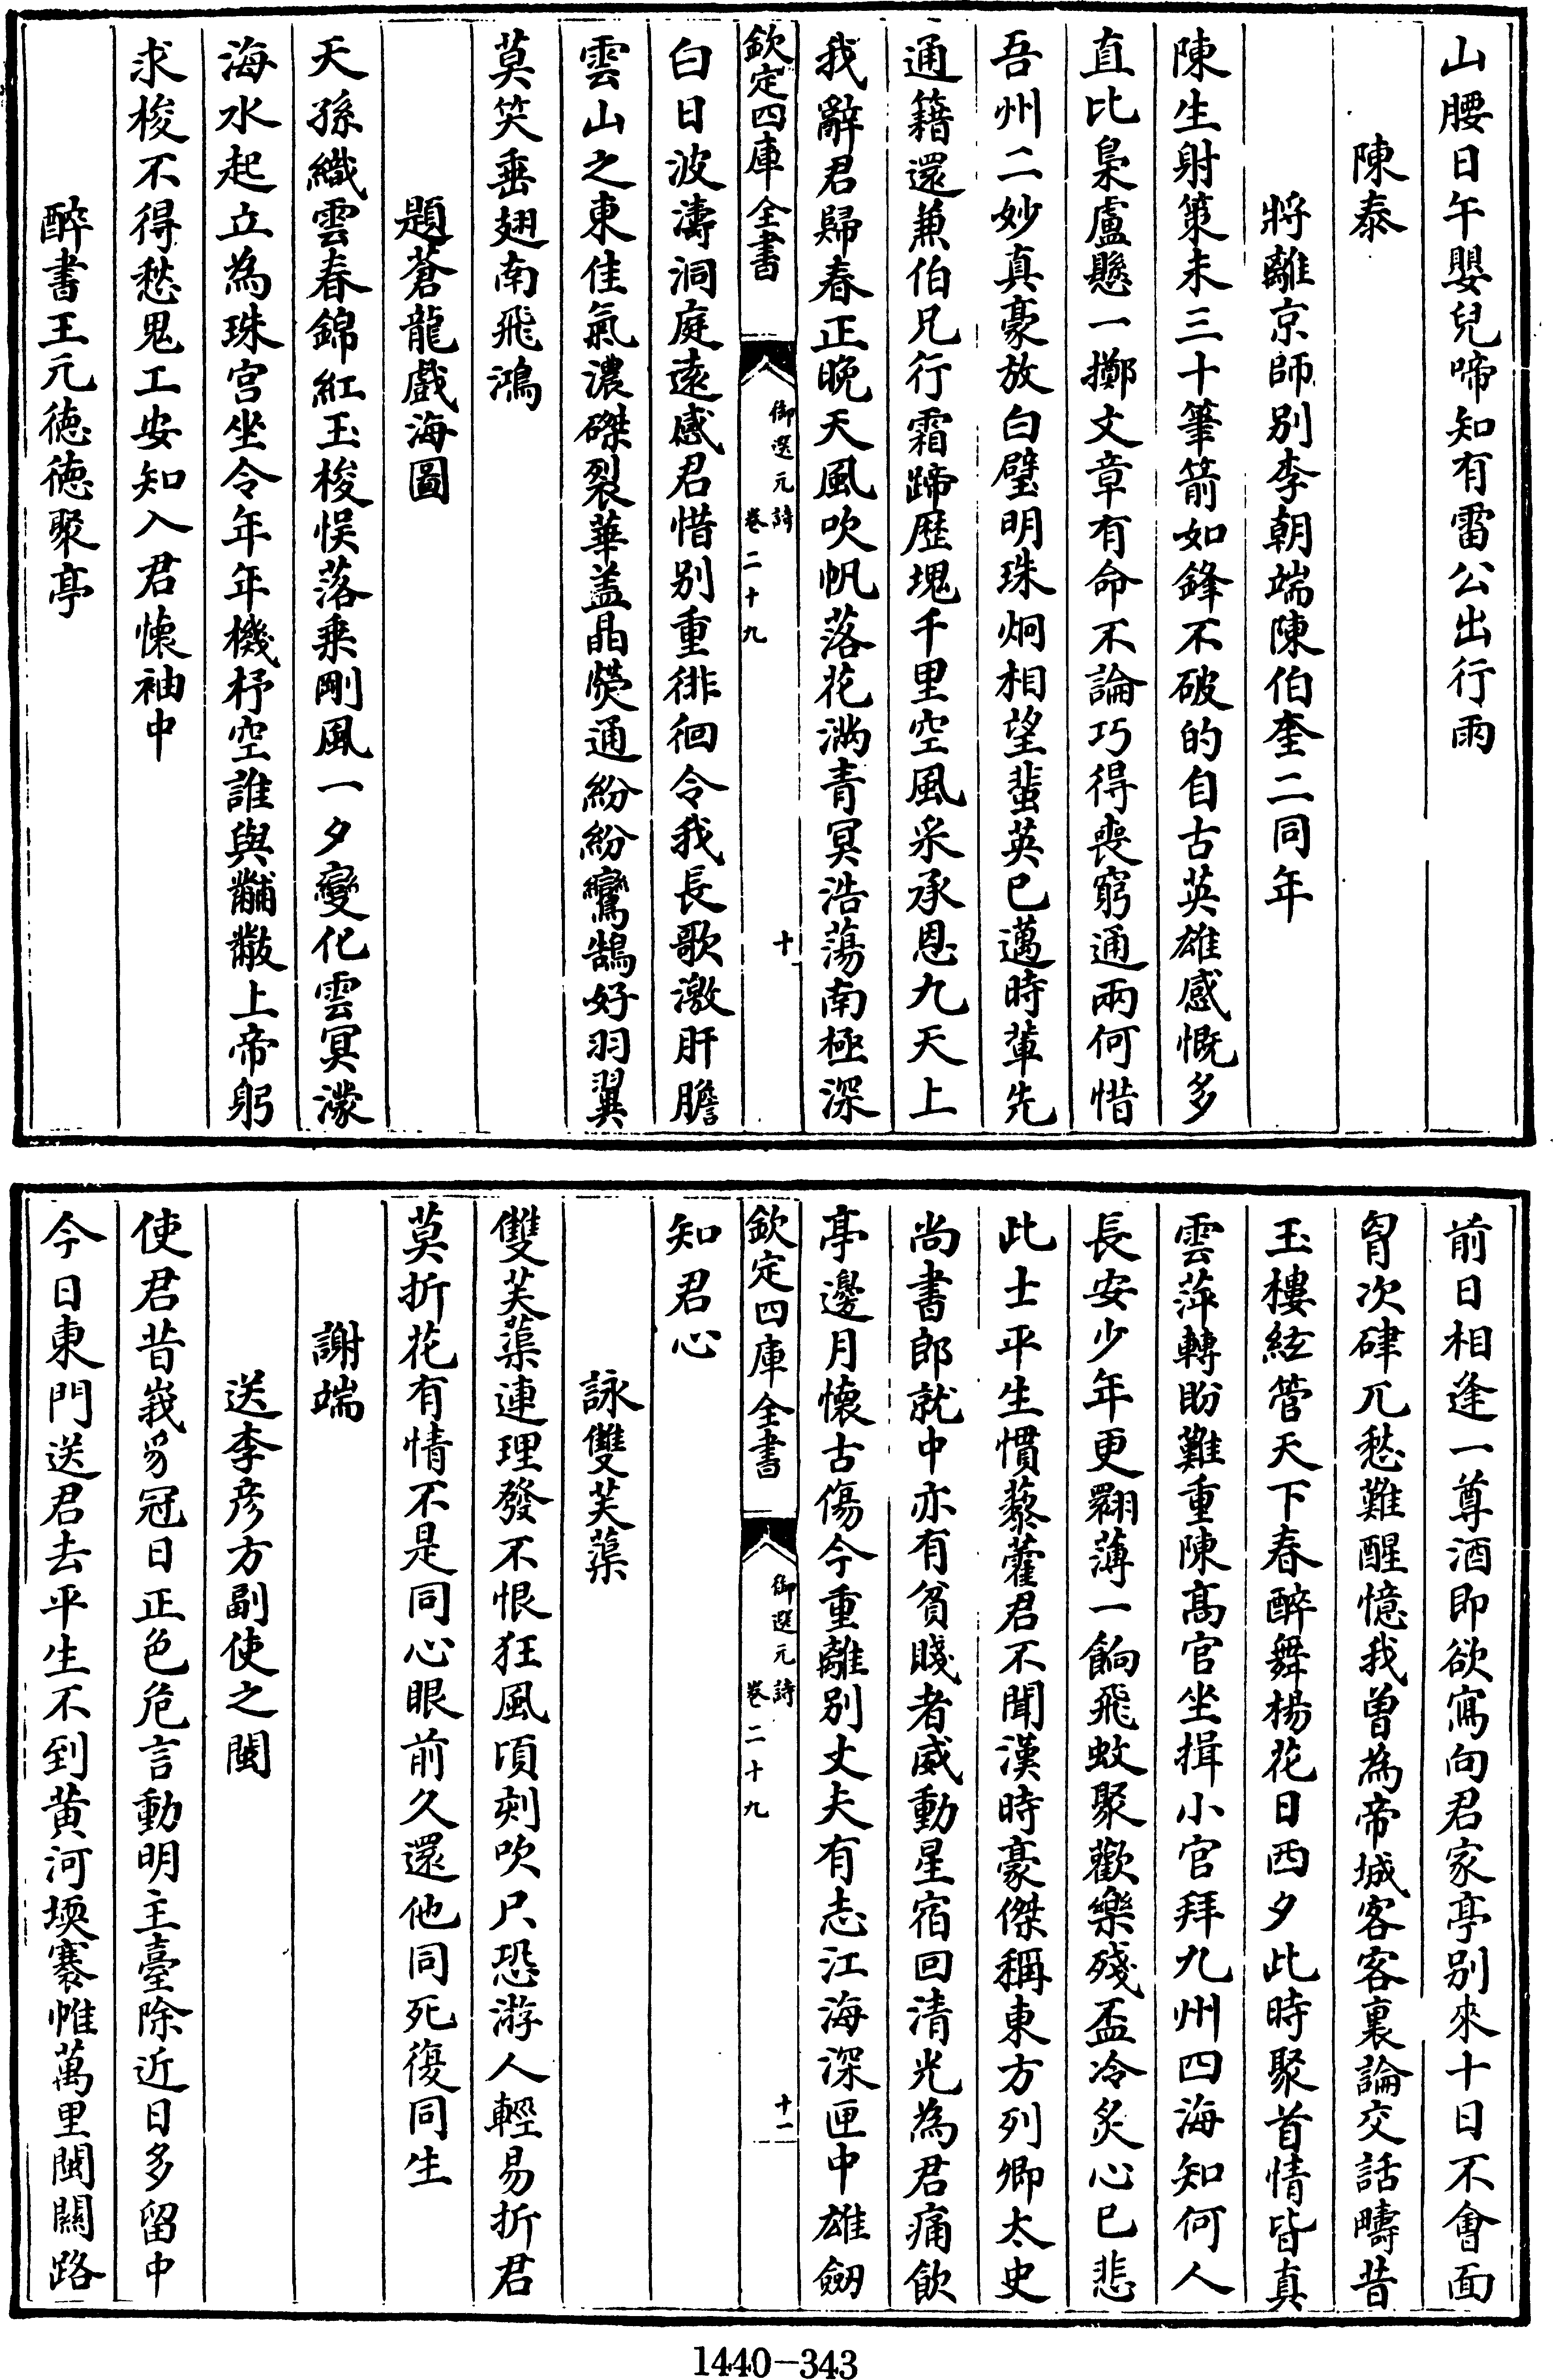 山腰日午嬰兒啼知有雷公出行雨
陳泰
將離京師别李朝端陳伯奎二同年
陳生射策未三十筆箭如鋒不破的自古英雄感慨多
直比梟盧懸一擲文章有命不論巧得喪窮通兩何惜
吾州二妙真豪放白璧明珠炯相望蜚英已邁時輩先
通籍還兼伯兄行霜蹄歴塊千里空風采承恩九天上
我辭君歸春正晩天風吹帆落花滿青冥浩蕩南極深
欽定四庫全書
御選元詩
卷二十九
十
白日波濤洞庭遠感君惜别重徘徊令我長歌激肝膽
雲山之東佳氣濃磔裂華盖晶熒通紛紛鸞鵠好羽翼
莫笑垂翅南飛鴻
題蒼龍戲海圖
天孫織雲春錦紅玉梭悮落乗剛風一夕變化雲冥濛
海水起立為珠宫坐令年年機杼空誰與黼黻上帝躬
求梭不得愁鬼工安知入君懐袖中
醉書王元徳徳聚亭
前日相逢一尊酒即欲寫向君家亭别來十日不會面
胷次硉兀愁難醒憶我曽為帝城客客裏論交話疇昔
玉樓絃管天下春醉舞楊花日西夕此時聚首情皆真
雲萍轉盼難重陳髙官坐揖小官拜九州四海知何人
長安少年更翾薄一餉飛蚊聚歡樂殘盃冷炙心已悲
此士平生慣藜藿君不聞漢時豪傑稱東方列卿太史
尚書郎就中亦有貧賤者威動星宿回清光為君痛飲
亭邊月懐古傷今重離别丈夫有志江海深匣中雄劒
欽定四庫全書
御選元詩
卷二十九
十一
知君心
詠雙芙蕖
雙芙蕖連理發不恨狂風頃刻吹只恐游人輕易折君
莫折花有情不是同心眼前久還他同死復同生
謝端
送李彦方副使之閩
使君昔峩豸冠日正色危言動明主臺除近日多留中
今日東門送君去平生不到黄河堧褰帷萬里閩關路
1440-343